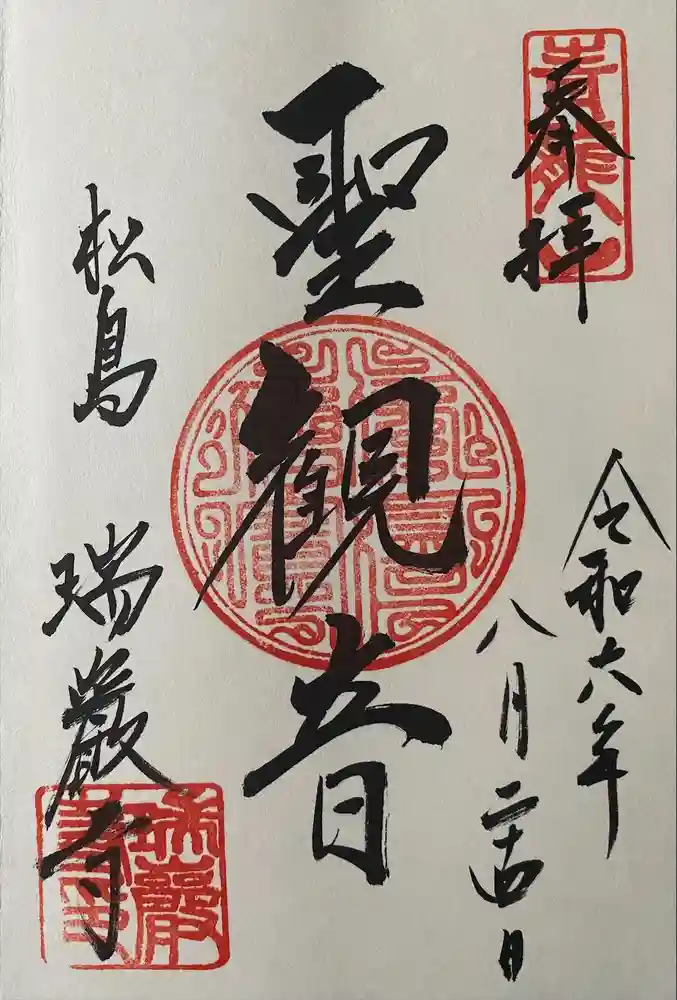 奉拝
青龍山
令和六年
八月二十四日
聖観音
松島 瑞巌寺